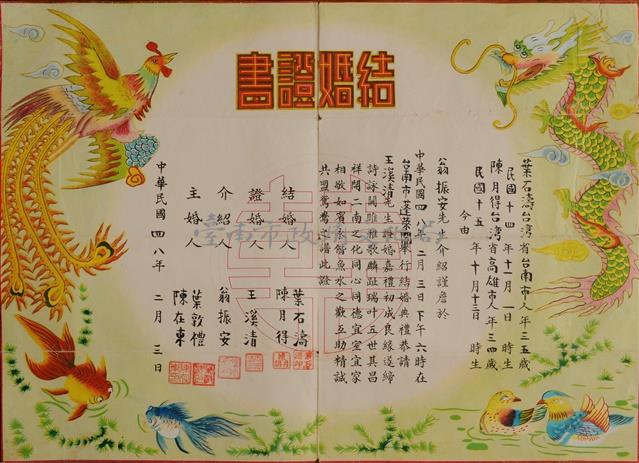 結婚證書
葉石濤台湾省台南市人年三五歲
民國十四年十一月一日 時生
陳月得台湾省高雄市人年三四歲
民國十五年十月十三日 時生
今由
翁振安先生介紹謹詹於
中華民國四八年二月三日下午六時在
台南市蓬萊閣舉行結婚典禮恭請
王溪清先生證婚嘉禮初成良緣遂締
詩詠關雎雅歌麟趾瑞叶五世其昌
祥開二南之化同心同德宜室宜家
相敬如賓永諧魚水之歡互助精誠
共盟鴛鴦之誓此證
結婚人 葉石濤
陳月得
證婚人 王溪清
介紹人 翁振安
主婚人 葉敦禮
陳在東
中華民國四八年二月三日
囍